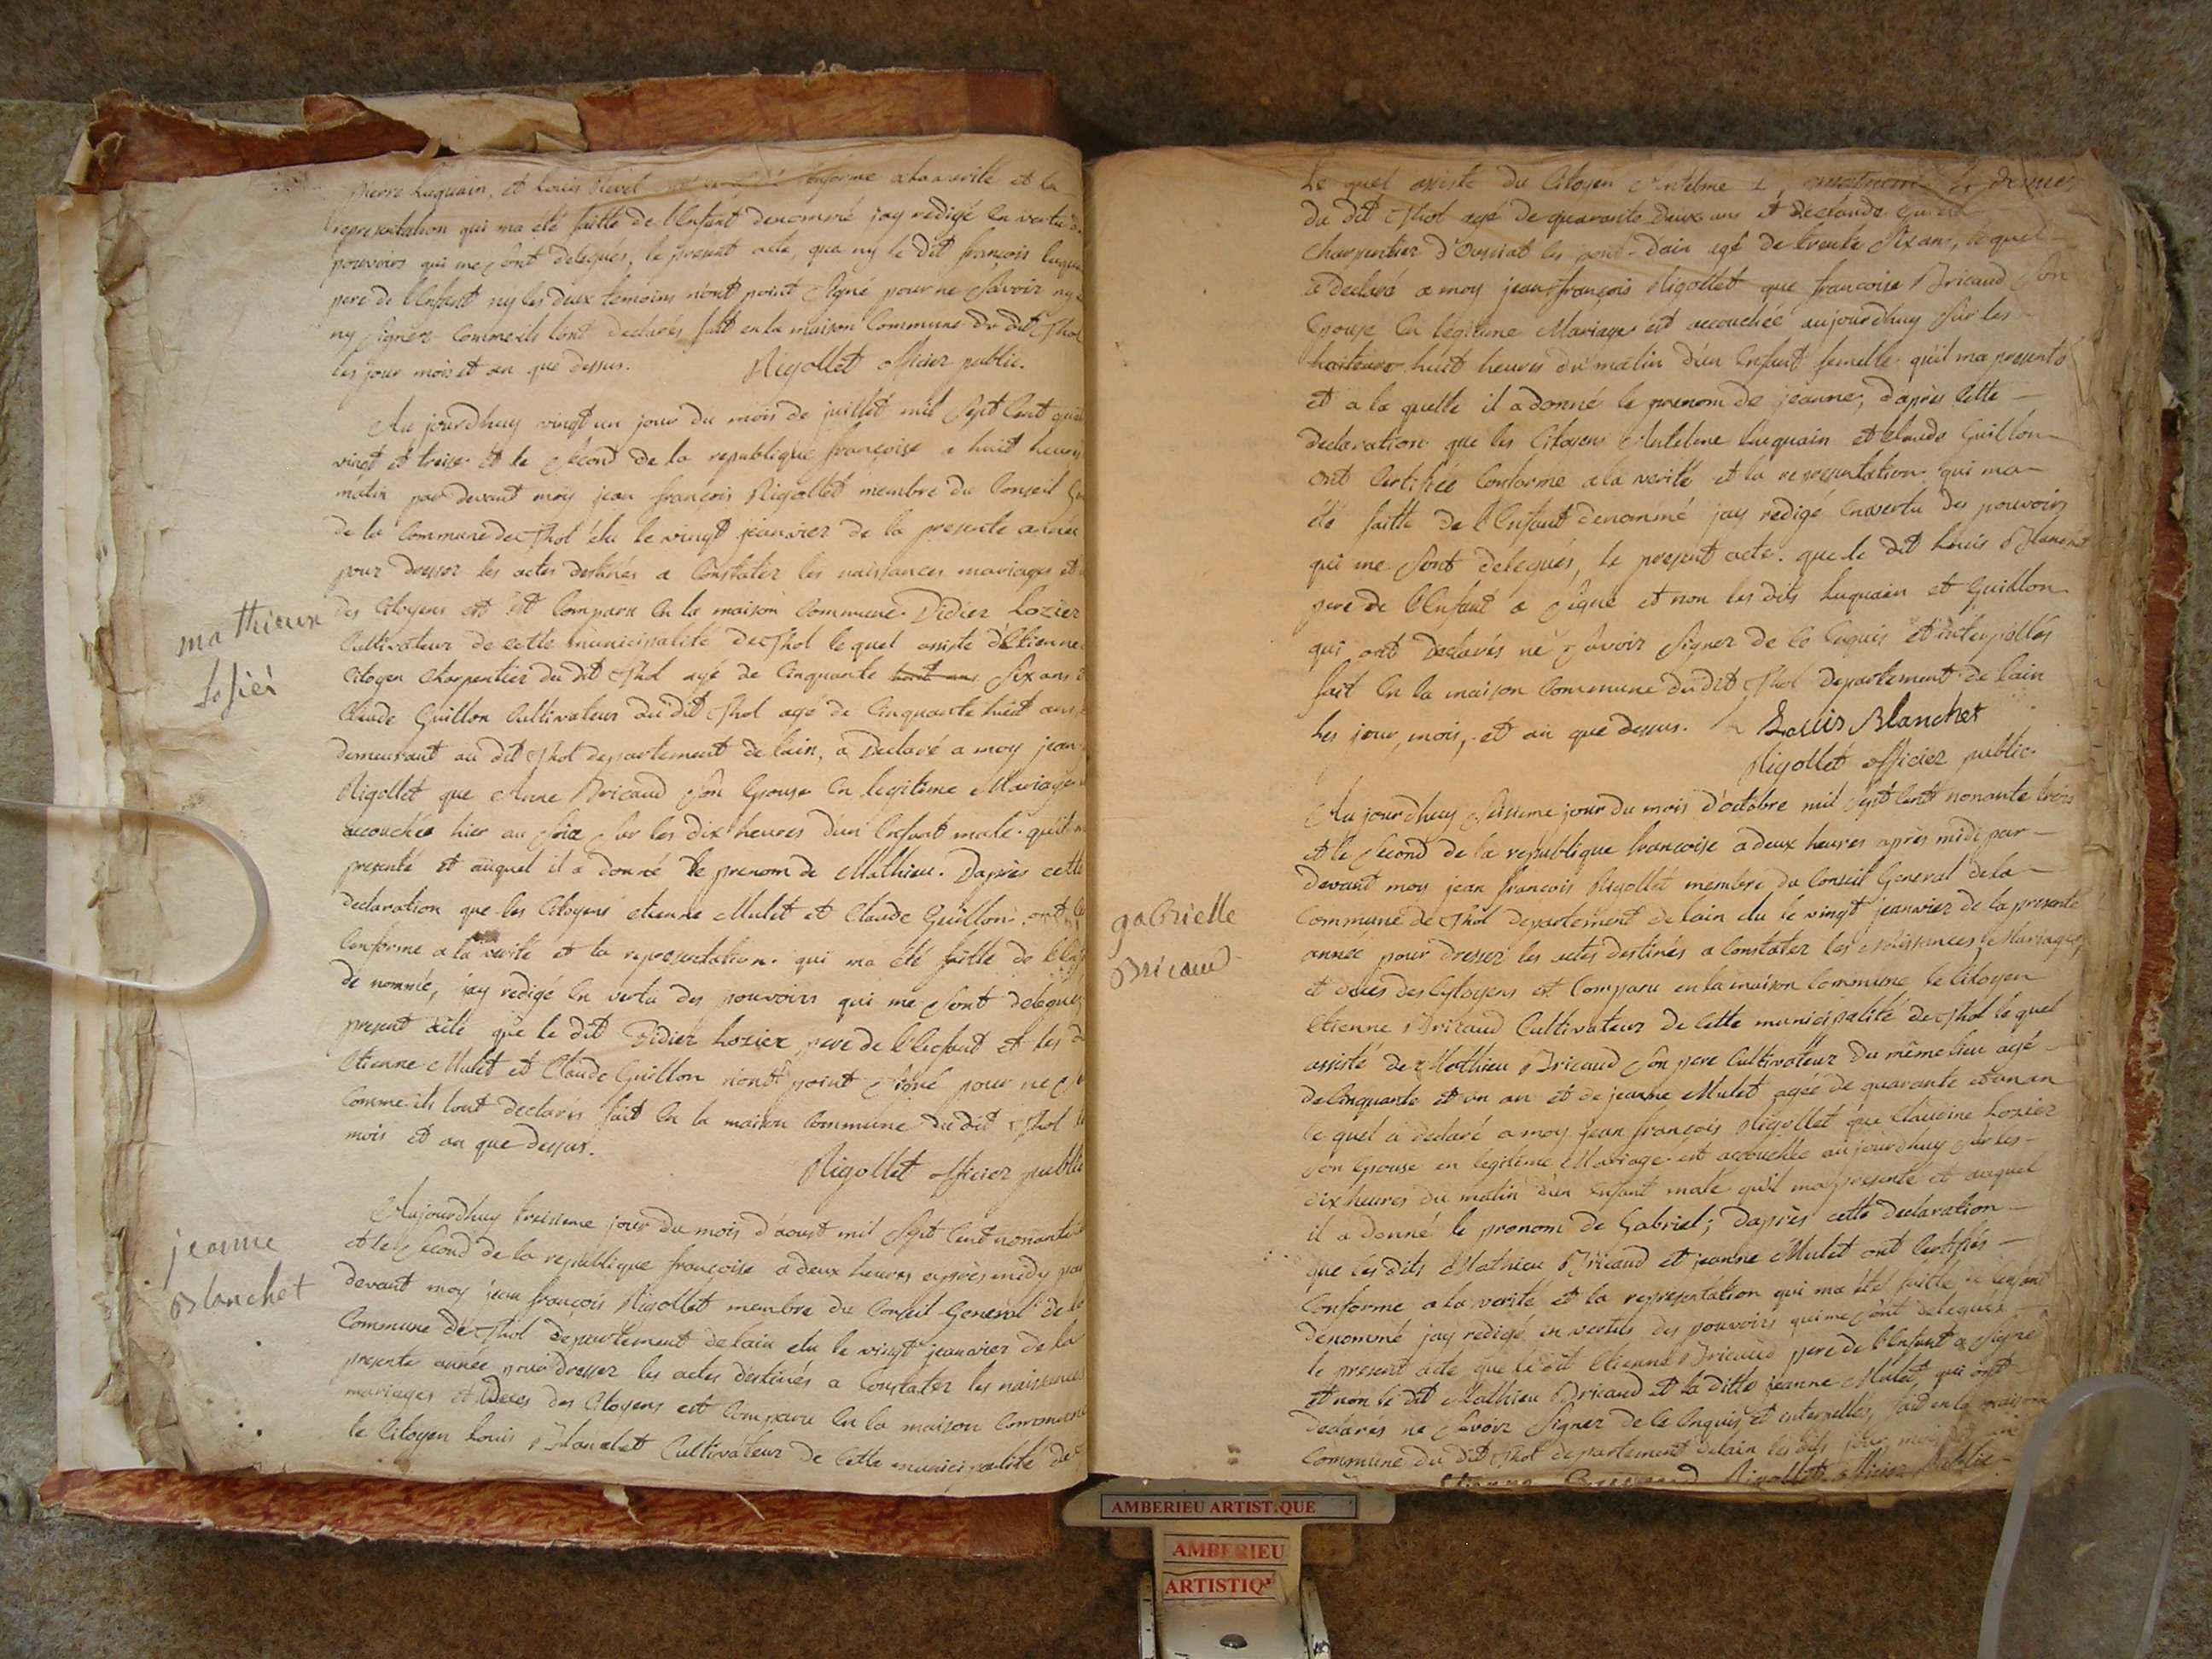 Pierre Luquain, et Louis Revel conforme a la verité et la
representation qui ma été faitte de l'Enfant denommé jay redigé En vertu
pouvoirs qui me sont delegués, le present acte, que ny le dit françois
pere de l'Enfant ny les deux temoins n'ont point signé pour ne savoir ny
ny signer comme ils l'ont declarés, fait en la maison Commune du dit Thol
les jour mois et an que dessus. Rigollet officier public.
Au jourdhuy vingt un jour du mois de juillet mil sept Cent
vingt et treise et le second de la republique françoise a huit heures
matin par devant moy jean françois Rigollet membre du Conseil
de la Commune de Thol élu le vingt jeanvier de la presente année
pour dresser les actes destinés a Constater les naissances mariages et
mathieux
losier
des Citoyens est Comparu En la maison Commune Didier Lozier
Cultivateur de cette municipalité de Thol le quel assiste d'Etienne
Citoyen Charpentier du dit Thol agé de Cinquante huit ans six ans
Claude Guillon Cultivateur du dit Thol agé de Cinquante huit ans
demeurant au dit Thol departement de l'ain, a Declaré a moy jean
Rigollet que Anne Bricaud son Epouse En legitime Mariage
accouchée hier au soir sur les dix heures d'un Enfant male qu'il
presenté et auquel il a donné le prenom de Mathieu. D'après cette
declaration que les Citoyens etienne Mulet et Claude Guillon ont
Conforme a la verité et la representation qui ma été faitte de
de nommée, jay redigé En vertu des pouvoirs qui me sont delegués
present acte que le dit Didier Lozier pere de l'Enfant et les
Etienne Mulet et Claude Guillon n'ont point signé pour ne
Comme ils lont declarés fait En la maison Commune du dit Thol
mois et an que dessus.
Rigollet officier public
jeanne
Blanchet
Aujourdhuy treisieme jour du mois d'aoust mil sept Cent nonante
et le second de la republique françoise a deux heures après midy par
devant moy jean françois Rigollet membre du Conseil General de la
Commune de Thol departement de lain elu le vingt jeanvier de la
presente année pour dresser les actes destinés a Constater les naissances
mariages et Deces des Citoyens est Comparu En la maison Commune
le Citoyen Louis Blanchet Cultivateur de Cette municipalité de
Le quel assiste du Citoyen Antelme
du dit Thol agé de quarante deux ans et de claude
Charpentier d'Oussiat les pont-d'ain agé de trente six ans, le quel
a declaré a moy jean françois Rigollet que francoise Bricaud son
Epouse En legitime Mariage est accouchée aujourdhuy sur les
huit heures du matin d'un Enfant femelle qu'il ma presenté
et a la quelle il a donné le prenom de jeanne, d'après cette
declaration que les Citoyens Antelme Luquain et claude Guillon
ont Certifiée Conforme a la verité et la representation qui ma
été faitte de l'Enfant denommé jay redigé En vertu des pouvoirs
qui me sont delegués, le present acte que le dit Louis Blanchet
pere de l'Enfant a signé et non les dits Luquain et Guillon
qui ont declarés ne savoir signer de ce Enquis et interpellés
fait En la maison Commune du dit Thol departement de lain
les jour, mois, et an que dessus. Louis Blanchet
Rigollet officier public
Au jourdhuy sixieme jour du mois d'octobre mil sept Cent nonante trois
et le second de la republique francoise a deux heures après midi par
devant moy jean francois Rigollet membre du Conseil General de la
Commune de Thol departement de lain elu le vingt jeanvier de la presente
gabrielle
Bricaud
année pour dresser les actes destinés a Constater les Naissances, Mariages,
et deces des Cytoyens est Comparu en la maison Commune le Citoyen
Etienne Bricaud Cultivateur de Cette municipalité de Thol le quel
assisté de Mathieu Bricaud son pere Cultivateur du même lieu agé
de Cinquante et un an et de jeanne Mulet agée de quarante et un an
le quel a declaré a moy jean françois Rigollet que Claudine Lozier
son Epouse en legitime Mariage est accouchée aujourdhuy sur les
dix heures du matin d'un Enfant male qu'il ma presenté et auquel
il a donné le prenom de Gabriel; d'après cette declaration
que les dits Mathieu Bricaud et jeanne Mulet ont Certifiés
Conforme a la verité et la representation qui ma été faitte de lenfant
denommé jay redigé en vertus des pouvoirs qui me sont delegués
le present acte que le dit Etienne Bricaud pere de l'Enfant a signé
et non le dit Mathieu Bricaud et la ditte jeanne Mulet qui ont
declarés ne savoir signer de Ce Enquis et interpellés, fait en la maison
Commune du dit Thol departement de lain les dits jour mois et an
Rigollet officier public
AMBERIEU ARTISTIQUE
AMBERIEU
ARTISTIQ